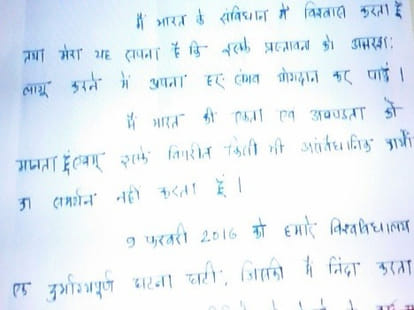 मैं भारत के संविधान में विश्वास करता हूँ
तथा मेरा यह सपना है कि इसके प्रस्तावना को अक्षरश:
लागू करने में अपना हर संभव योगदान कर पाऊँ ।
मैं भारत की एकता एवं अखण्डता को
मानता हूं एवम् इसके विपरीत किसी भी असंवैधानिक कार्यों
का समर्थन नहीं करता हूँ ।
9 फरवरी 2016 को हमारे विश्वविधालय
एक दुर्भाग्यपूर्ण घटना घटी, जिसकी मैं निंदा करता